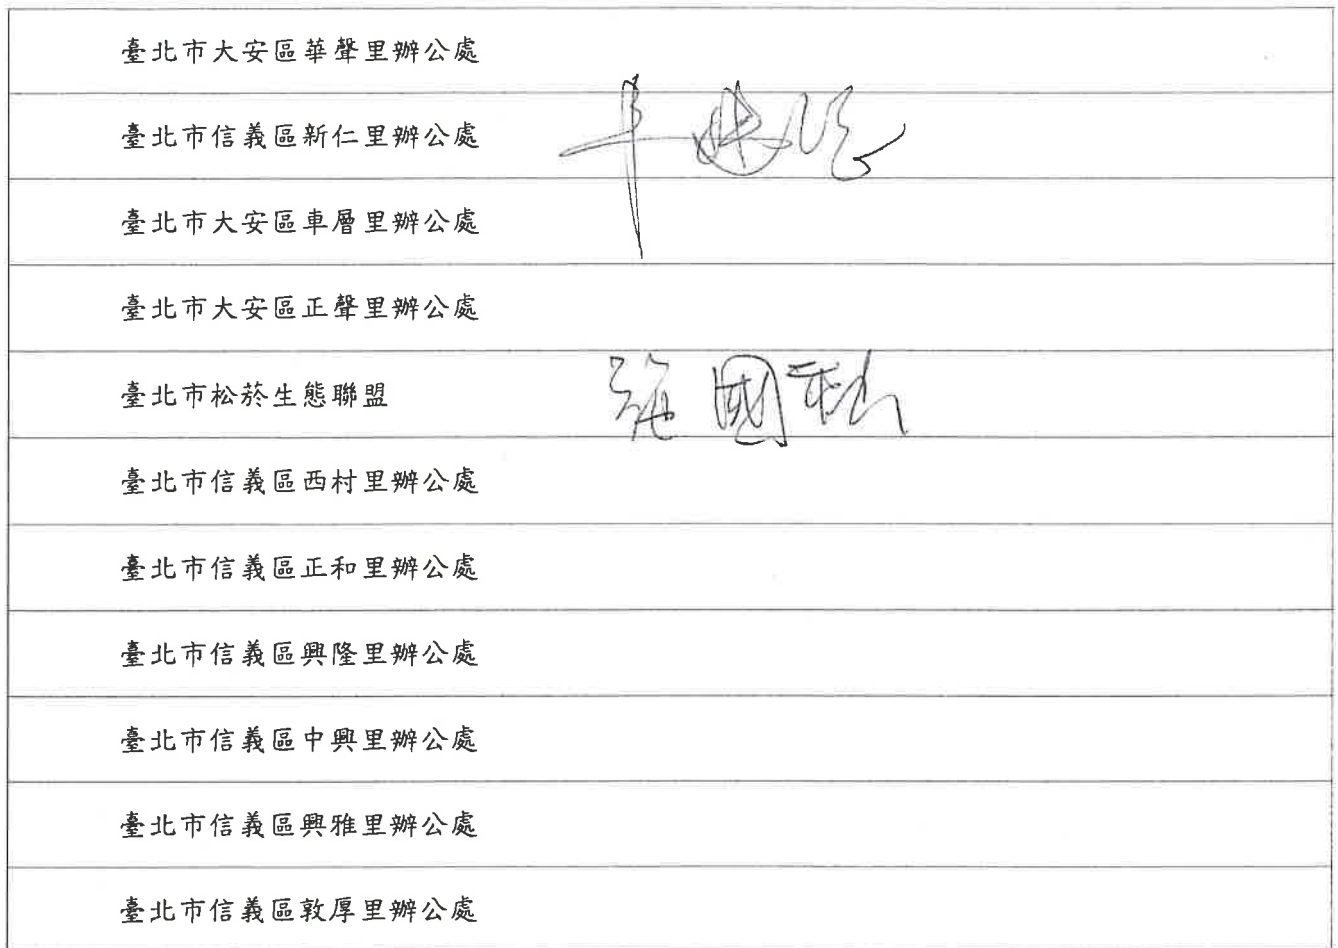 臺北市大安區華聲里辦公處
臺北市信義區新仁里辦公處
臺北市大安區車層里辦公處
臺北市大安區正聲里辦公處
臺北市松菸生態聯盟
臺北市信義區西村里辦公處
臺北市信義區正和里辦公處
臺北市信義區興隆里辦公處
臺北市信義區中興里辦公處
臺北市信義區興雅里辦公處
臺北市信義區敦厚里辦公處